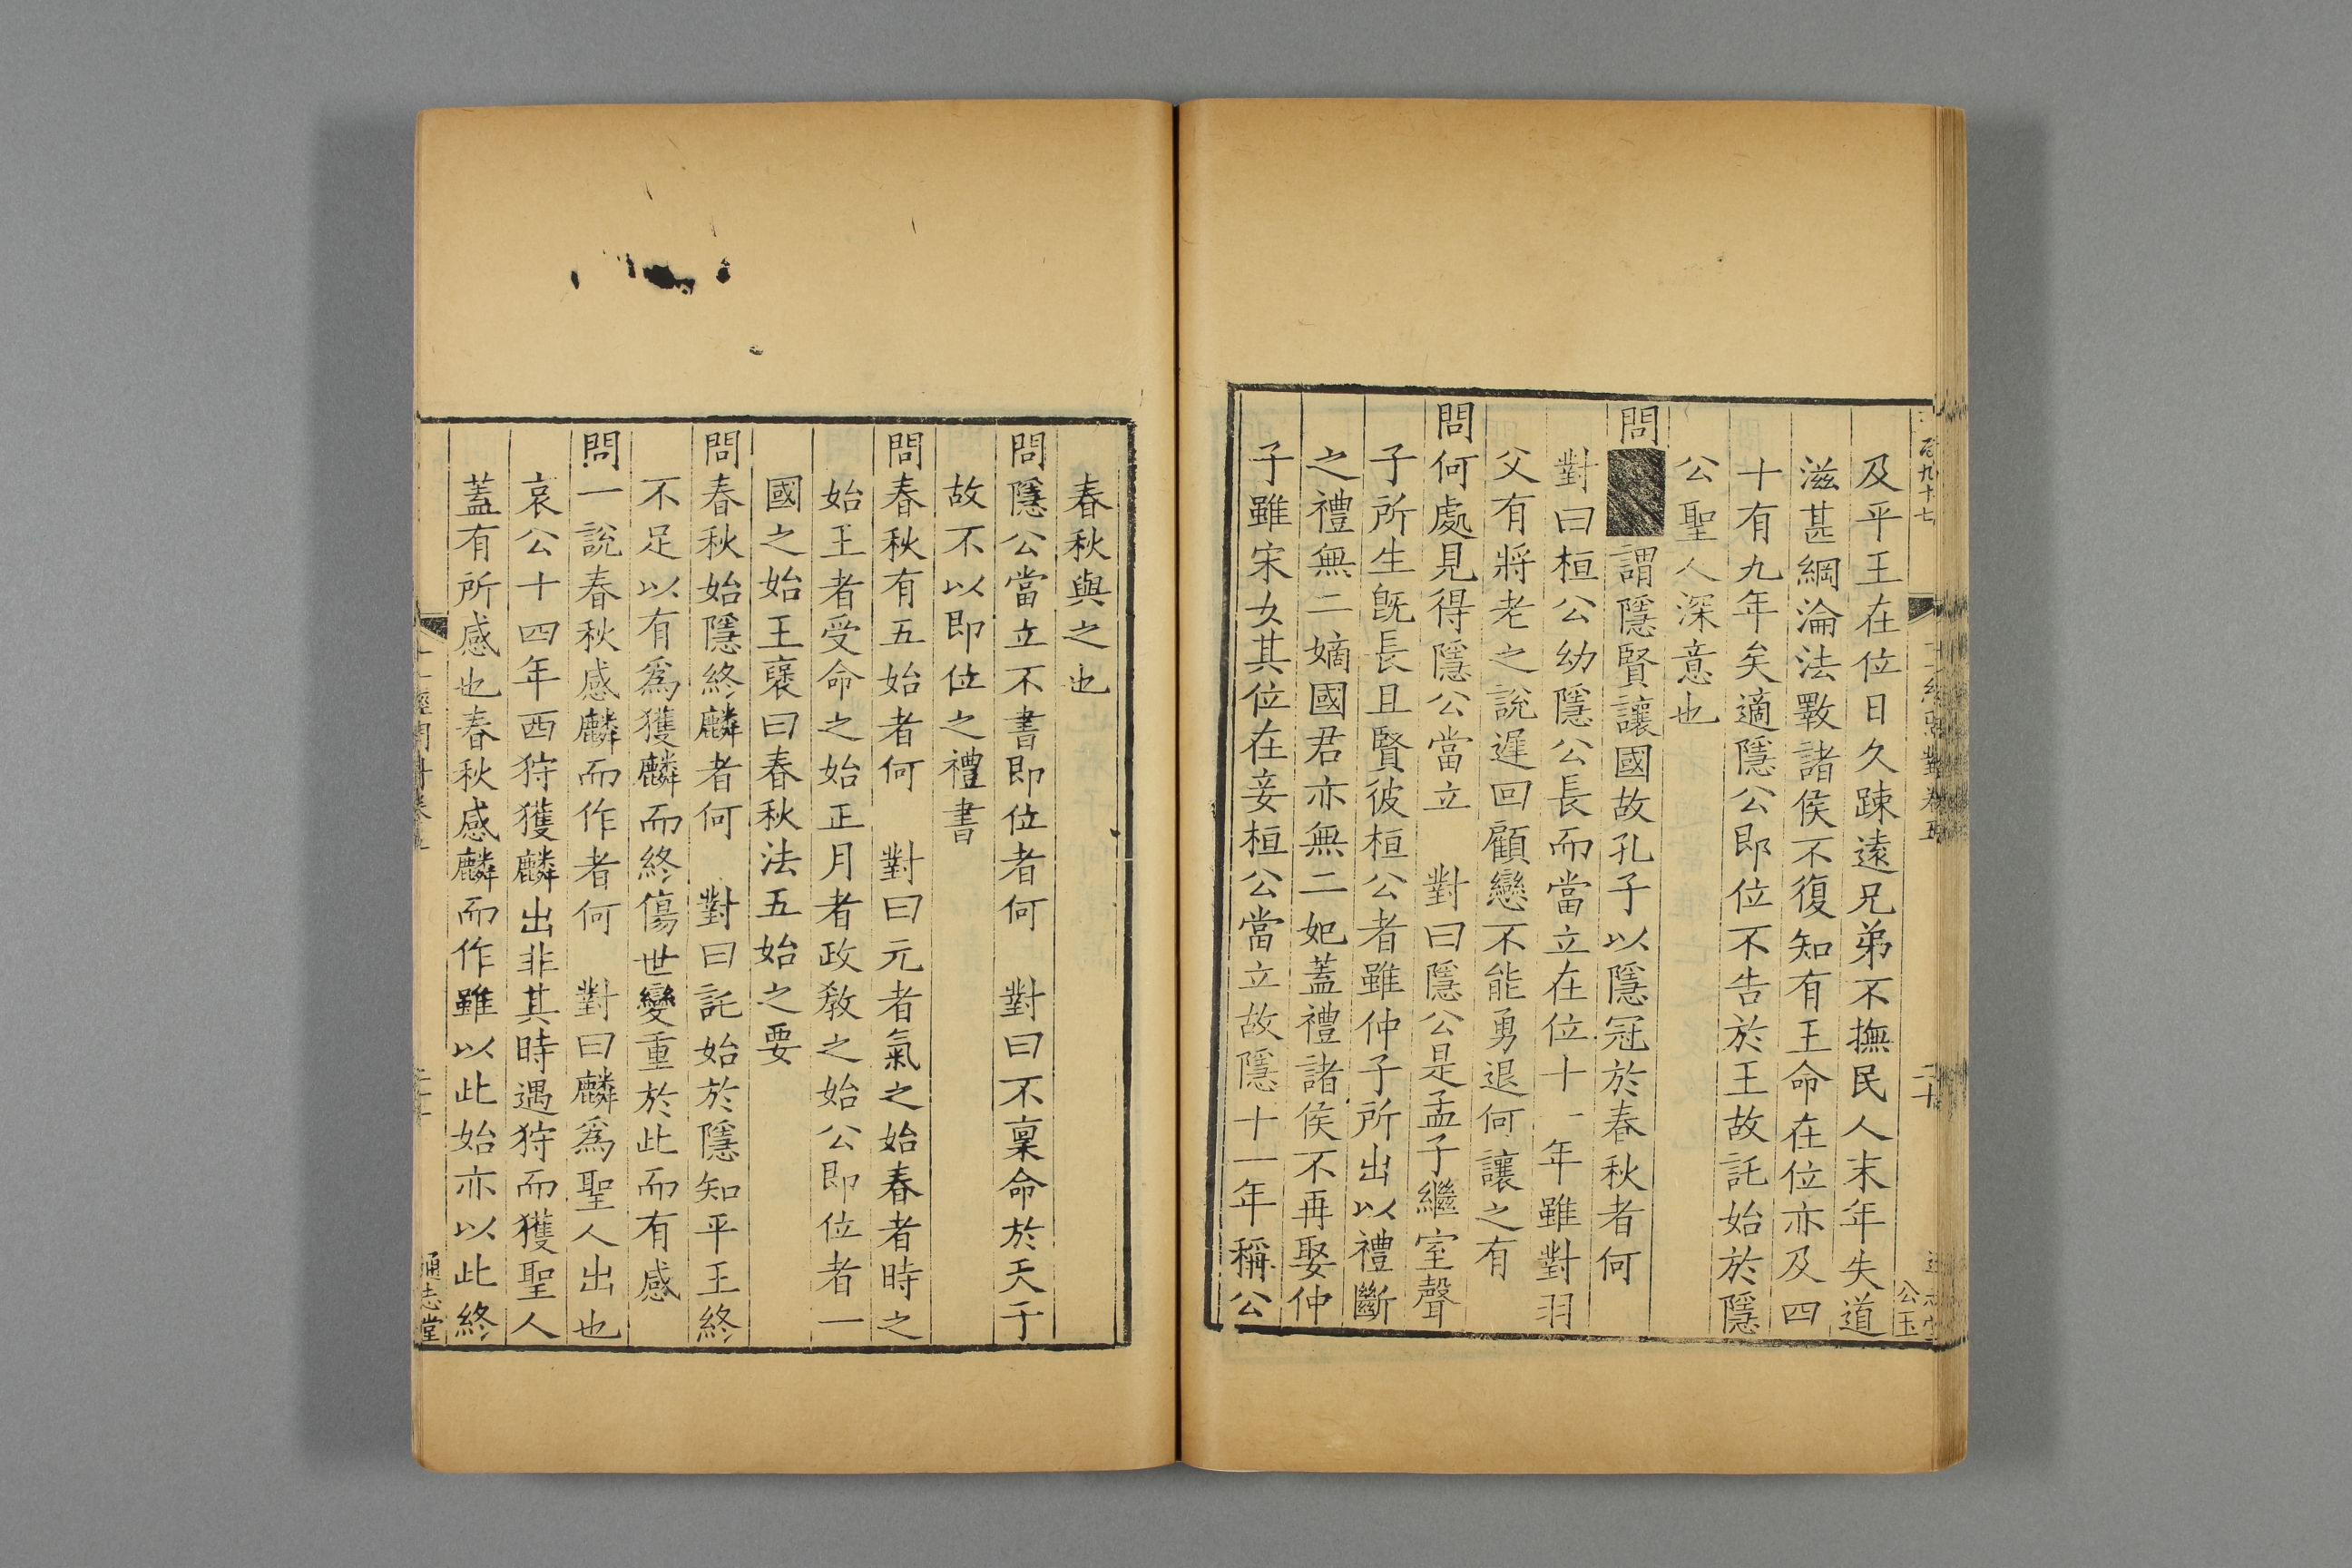 及平王在位日久踈遠兄弟不撫民人末年失道
滋甚綱淪法斁諸侯不復知有王命在位亦及四
十有九年矣適隱公即位不告於王故託始於隱
公聖人深意也
問謂隱賢讓國故孔子以隱冠於春秋者何
對曰桓公幼隱公長而當立在位十一年雖對羽
父有將老之說遲回顧戀不能勇退何讓之有
問何處見得隱公當立　對曰隱公是孟子繼室聲
子所生旣長且賢彼桓公者雖仲子所出以禮斷
之禮無二嫡國君亦無二妃蓋禮諸侯不再娶仲
子雖宋女其位在妾桓公當立故隱十一年稱公
春秋與之也
問隱公當立不書即位者何　對曰不稟命於天子
故不以即位之禮書
問春秋有五始者何　對曰元者氣之始春者時之
始王者受命之始正月者政敎之始公即位者一
國之始王襃曰春秋法五始之要
問春秋始隱終麟者何　對曰託始於隱知平王終
不足以有爲獲麟而終傷世變重於此而有感
問一說春秋感麟而作者何　對曰麟爲聖人出也
哀公十四年西狩獲麟出非其時遇狩而獲聖人
蓋有所感也春秋感麟而作雖以此始亦以此終
通志堂